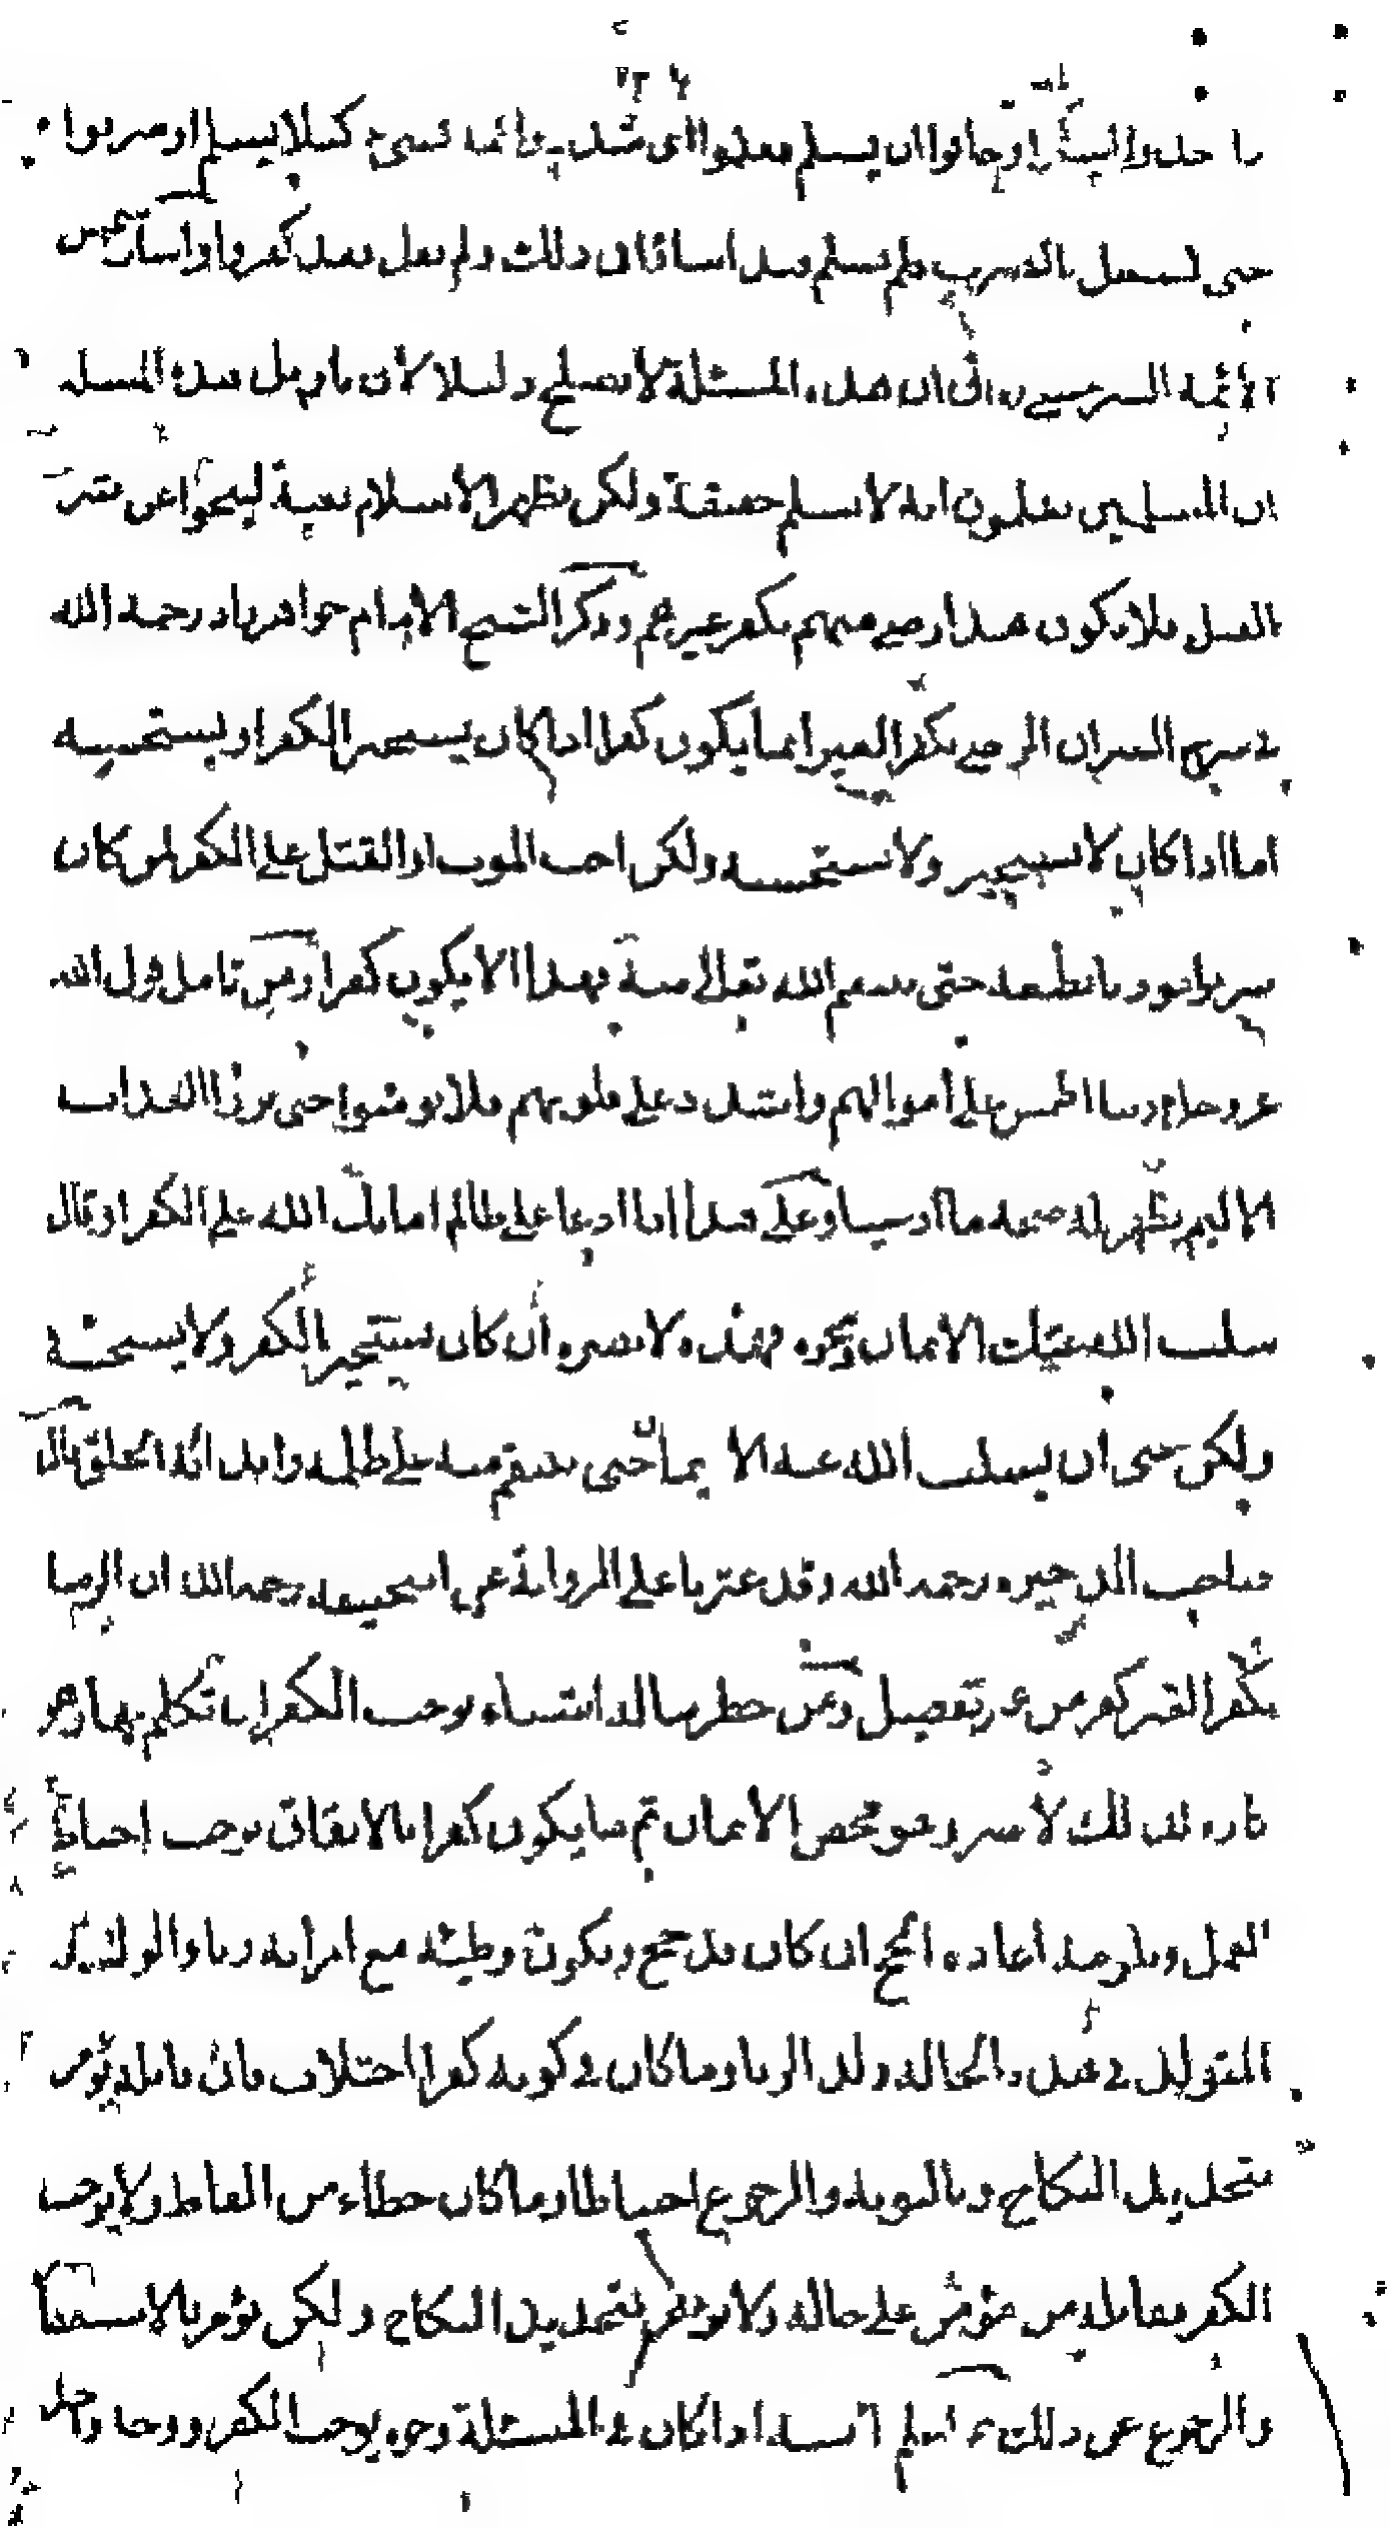 فاخذوا اليسار وخافوا ان يسلم فعلموا اي شد يد وانه شيء كيلا يسلم او ضربوا
حتى لشغل بالضرب فلم يسلم فقد اساؤا في ذلك ولم يقل فقد كفروا واشار شمس
الأئمة السرخسي الى ان هذه المسئلة لا تصلح دليلا لأن تاويل هذه المسئلة
ان المسلمين يعلمون انه لا يسلم حقيقة ولكن يظهر الاسلام تقية لينجوا عن شر
القتل فلا يكون هذا رضى منهم بكفر غيرهم وذكر الشيخ الامام خواهرزاده رحمه الله
في شرح السير ان الرضى بكفر الغير انما يكون كفرا اذا كان يستجيز الكفر او يستحسنه
اما اذا كان لا يستجيز ولا يستحسنه ولكن احب الموت او القتل على الكفر لمن كان
شريرا موذيا بطبعه حتى ينتقم الله تعالى منه فهذا لا يكون كفرا ومن تامل قول الله
عز وجل ربنا اطمس على أموالهم واشدد على قلوبهم فلا يؤمنوا حتى يروا العذاب
الاليم يظهر له صحة ما ادعينا وعلى هذا اذا ادعا على ظالم اماتك الله على الكفر او قال
سلب الله عنك الايمان ونحوه فهذه لا يضره ان كان يستجيز الكفر ولا يستحسنه
ولكن تمنى ان يسلب الله عنه الا يمان حتى ينتقم منه على ظلمه وايذائه الخلق قال
صاحب الذخيره رحمه الله وقد عثرنا على الرواية عن ابى حنيفه رحمه الله ان الرضا
بكفر الغير كفر من غير تفصيل ومن خطر بباله اشياء توجب الكفر ان تكلم بها وهو
كاره لذلك لا يضره وهو محض الايمان ثم ما يكون كفرا بالاتفاق يوجب احباط
العمل ويلزمه اعاده الحج ان كان قد حج ويكون وطيئه مع امرأته زنا والولد
المتولد في هذه الحالة ولد الزنا وما كان في كونه كفرا اختلاف فان قائله يؤمر
بتجديد النكاح وبالتوبة والرجوع احتياطا وما كان خطاء من الفاظ ولا يوجب
الكفر فقائله مؤمن على حاله ولا يؤمر بتجديد النكاح ولكن يؤمر بالاستغفار
والرجوع عن ذلك ثم اعلم انه اذا كان في المسئلة وجوه يوجب الكفر ووجه واحد